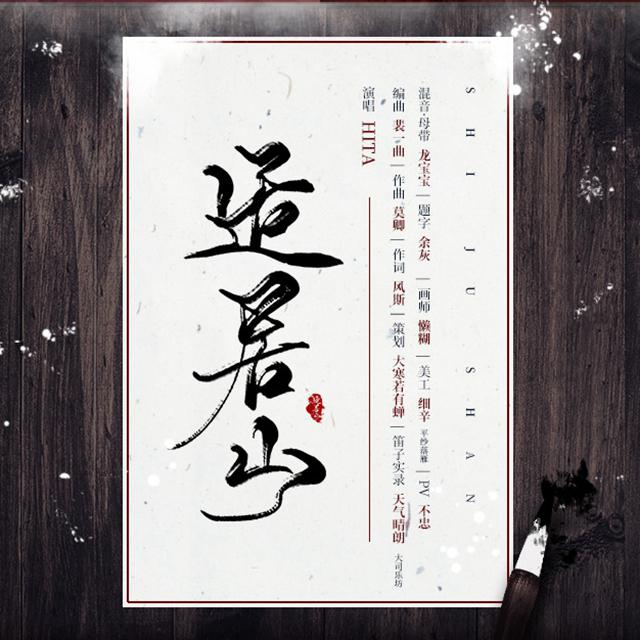 SHI JU SHAN
混音·母带 龙宝宝|题字 余灰|画师 懒糊|美工 细辛 平纱落雁|PV 不忠
编曲 裴一曲|作曲 莫卿|作词 风斯|策划 大寒若有蝉|笛子实录 天气晴朗 大司乐坊
演唱 HITA
适居山